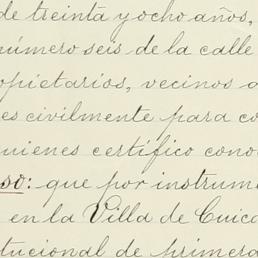 de treinta y ocho años,
número seis de la calle
opietarios, vecinos
es civilmente para co
quienes certifico cono
so: que por instrum
en la Villa de Cuica
tucional de primera